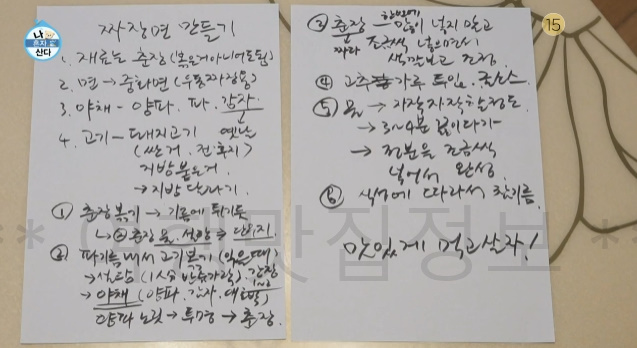 나 혼자 산다
15
짜장면 만들기
1. 재료는 춘장 (볶은거아니어도됨)
2. 면 → 중화면 (우동짜장용)
3. 야채 - 양파. 파. 감자.
4. 고기 - 돼지고기 옛날
(싼거. 전후지)
지방붙은거.
→ 지방 단다기.
① 춘장볶기 → 기름에 튀기듯
② 파기름내서 고기볶기 (익을때)
→ 설탕 (1人分 반숟가락). 간장
→ 야채 (양파. 감자. 대호박)
양파 노릇 → 투명 → 춘장.
③ 춘장 한번에 많이 넣지 말고
짜라 조금씩 넣으면서
색깔보고 조정.
④ 고추가루 투입. 굴소스
⑤ 물 → 자작자작할정도
→ 3~4분 끓이다가
→ 전분을 조금씩
넣어서 완성
⑥ 식성에 따라서 참기름.
맛있게 먹고살자!
** 연예맛집정보 **